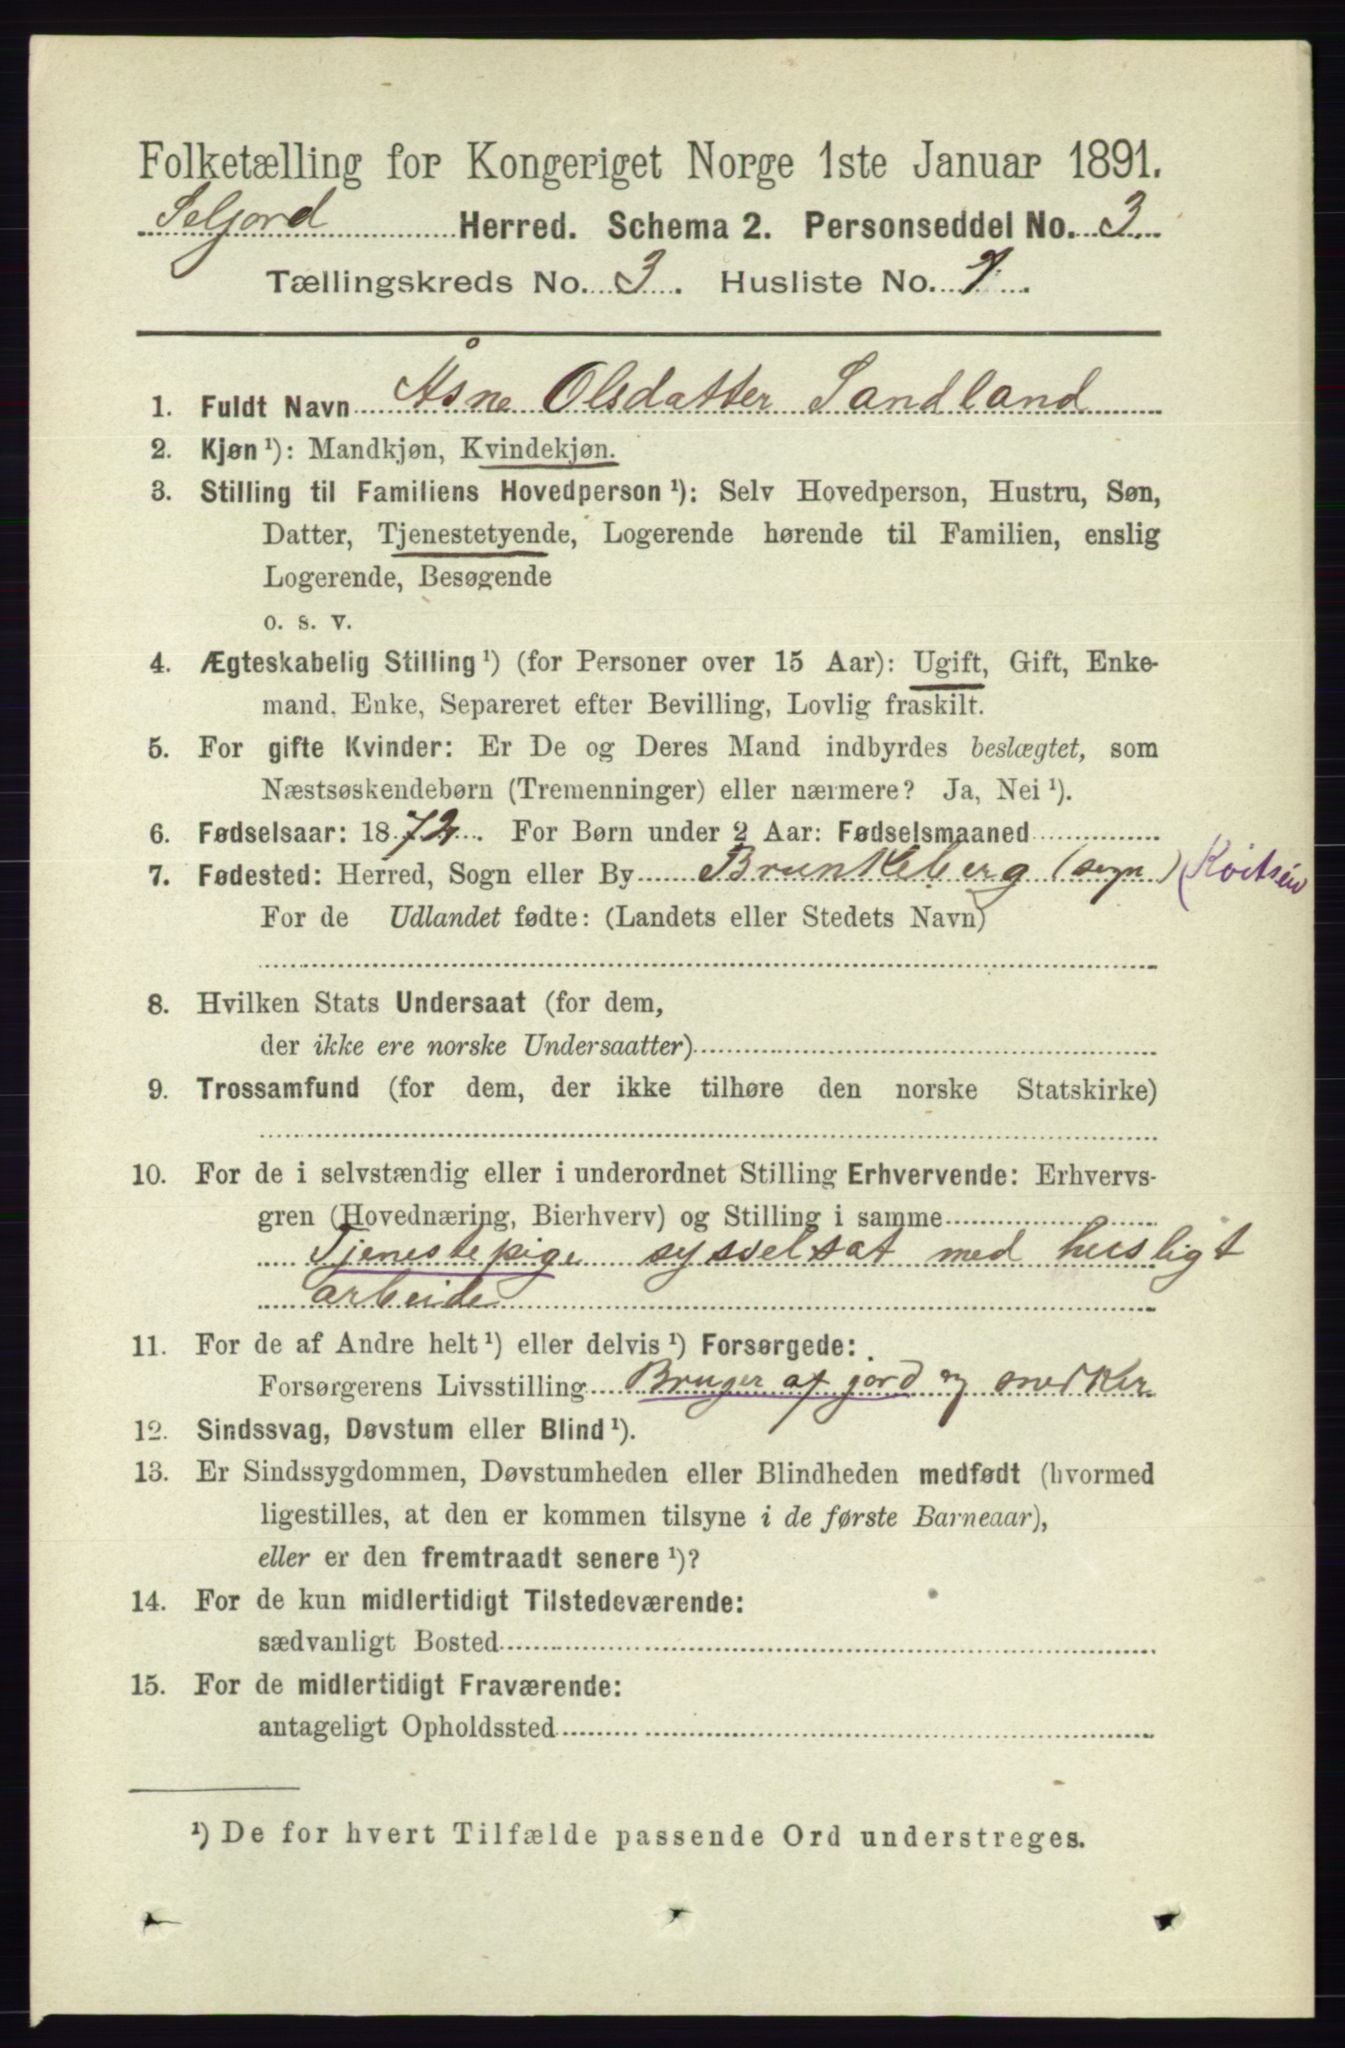 Folketælling for Kongeriget Norge 1ste Januar 1891.
Seljord Herred. Schema 2. Personseddel No. 3
Tællingskreds No. 3. Husliste No. 7.
1. Fuldt Navn Åsne Olsdatter Sandland
2. Kjøn ¹): Mandkjøn, Kvindekjøn.
3. Stilling til Familiens Hovedperson ¹): Selv Hovedperson, Hustru, Søn,
Datter, Tjenestetyende, Logerende hørende til Familien, enslig
Logerende, Besøgende
o. s. v.
4. Ægteskabelig Stilling ¹) (for Personer over 15 Aar): Ugift, Gift, Enke-
mand, Enke, Separeret efter Bevilling, Lovlig fraskilt.
5. For gifte Kvinder: Er De og Deres Mand indbyrdes beslægtet, som
Næstsøskendebørn (Tremenninger) eller nærmere? Ja, Nei ¹).
6. Fødselsaar: 1872. For Børn under 2 Aar: Fødselsmaaned
7. Fødested: Herred, Sogn eller By Brunkeberg (sogn) (Kvitseid
For de Udlandet fødte: (Landets eller Stedets Navn)
8. Hvilken Stats Undersaat (for dem,
der ikke ere norske Undersaatter)
9. Trossamfund (for dem, der ikke tilhøre den norske Statskirke)
10. For de i selvstændig eller i underordnet Stilling Erhvervende: Erhvervs-
gren (Hovednæring, Bierhverv) og Stilling i samme
Tjenestepige sysselsat med husligt
arbeide
11. For de af Andre helt ¹) eller delvis ¹) Forsørgede:
Forsørgerens Livsstilling Bruger af jord og snedker
12. Sindssvag, Døvstum eller Blind ¹).
13. Er Sindssygdommen, Døvstumheden eller Blindheden medfødt (hvormed
ligestilles, at den er kommen tilsyne i de første Barneaar),
eller er den fremtraadt senere ¹)?
14. For de kun midlertidigt Tilstedeværende:
sædvanligt Bosted
15. For de midlertidigt Fraværende:
antageligt Opholdssted
¹) De for hvert Tilfælde passende Ord understreges.